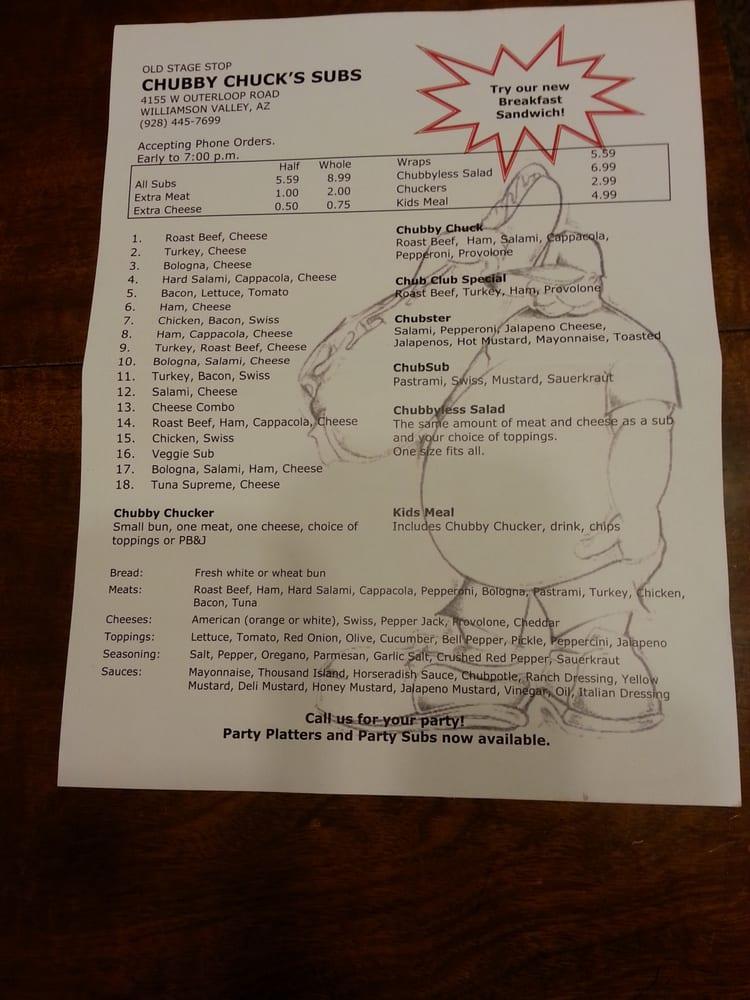 OLD STAGE STOP
CHUBBY CHUCK'S SUBS
4155 W OUTERLOOP ROAD
WILLIAMSON VALLEY, AZ
(928) 445-7699
Try our new
Breakfast
Sandwich!
Accepting Phone Orders.
Early to 7:00 p.m.
Half Whole
All Subs 5.59 8.99
Extra Meat 1.00 2.00
Extra Cheese 0.50 0.75
Wraps 5.59
Chubbyless Salad 6.99
Chuckers 2.99
Kids Meal 4.99
1. Roast Beef, Cheese
2. Turkey, Cheese
3. Bologna, Cheese
4. Hard Salami, Cappacola, Cheese
5. Bacon, Lettuce, Tomato
6. Ham, Cheese
7. Chicken, Bacon, Swiss
8. Ham, Cappacola, Cheese
9. Turkey, Roast Beef, Cheese
10. Bologna, Salami, Cheese
11. Turkey, Bacon, Swiss
12. Salami, Cheese
13. Cheese Combo
14. Roast Beef, Ham, Cappacola, Cheese
15. Chicken, Swiss
16. Veggie Sub
17. Bologna, Salami, Ham, Cheese
18. Tuna Supreme, Cheese
Chubby Chuck
Roast Beef, Ham, Salami, Cappacola,
Pepperoni, Provolone
Chub Club Special
Roast Beef, Turkey, Ham, Provolone
Chubster
Salami, Pepperoni, Jalapeno Cheese,
Jalapenos, Hot Mustard, Mayonnaise, Toasted
ChubSub
Pastrami, Swiss, Mustard, Sauerkraut
Chubbyless Salad
The same amount of meat and cheese as a sub
and your choice of toppings.
One size fits all.
Chubby Chucker
Small bun, one meat, one cheese, choice of
toppings or PB&J
Kids Meal
Includes Chubby Chucker, drink, chips
Bread: Fresh white or wheat bun
Meats: Roast Beef, Ham, Hard Salami, Cappacola, Pepperoni, Bologna, Pastrami, Turkey, Chicken,
Bacon, Tuna
Cheeses: American (orange or white), Swiss, Pepper Jack, Provolone, Cheddar
Toppings: Lettuce, Tomato, Red Onion, Olive, Cucumber, Bell Pepper, Pickle, Peppercini, Jalapeno
Seasoning: Salt, Pepper, Oregano, Parmesan, Garlic Salt, Crushed Red Pepper, Sauerkraut
Sauces: Mayonnaise, Thousand Island, Horseradish Sauce, Chubpotle, Ranch Dressing, Yellow
Mustard, Deli Mustard, Honey Mustard, Jalapeno Mustard, Vinegar, Oil, Italian Dressing
Call us for your party!
Party Platters and Party Subs now available.